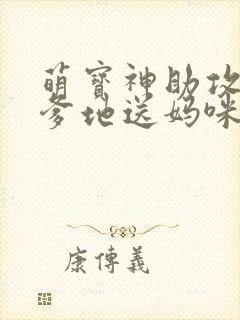 萌寶神助攻
爹地送媽咪
康傳義